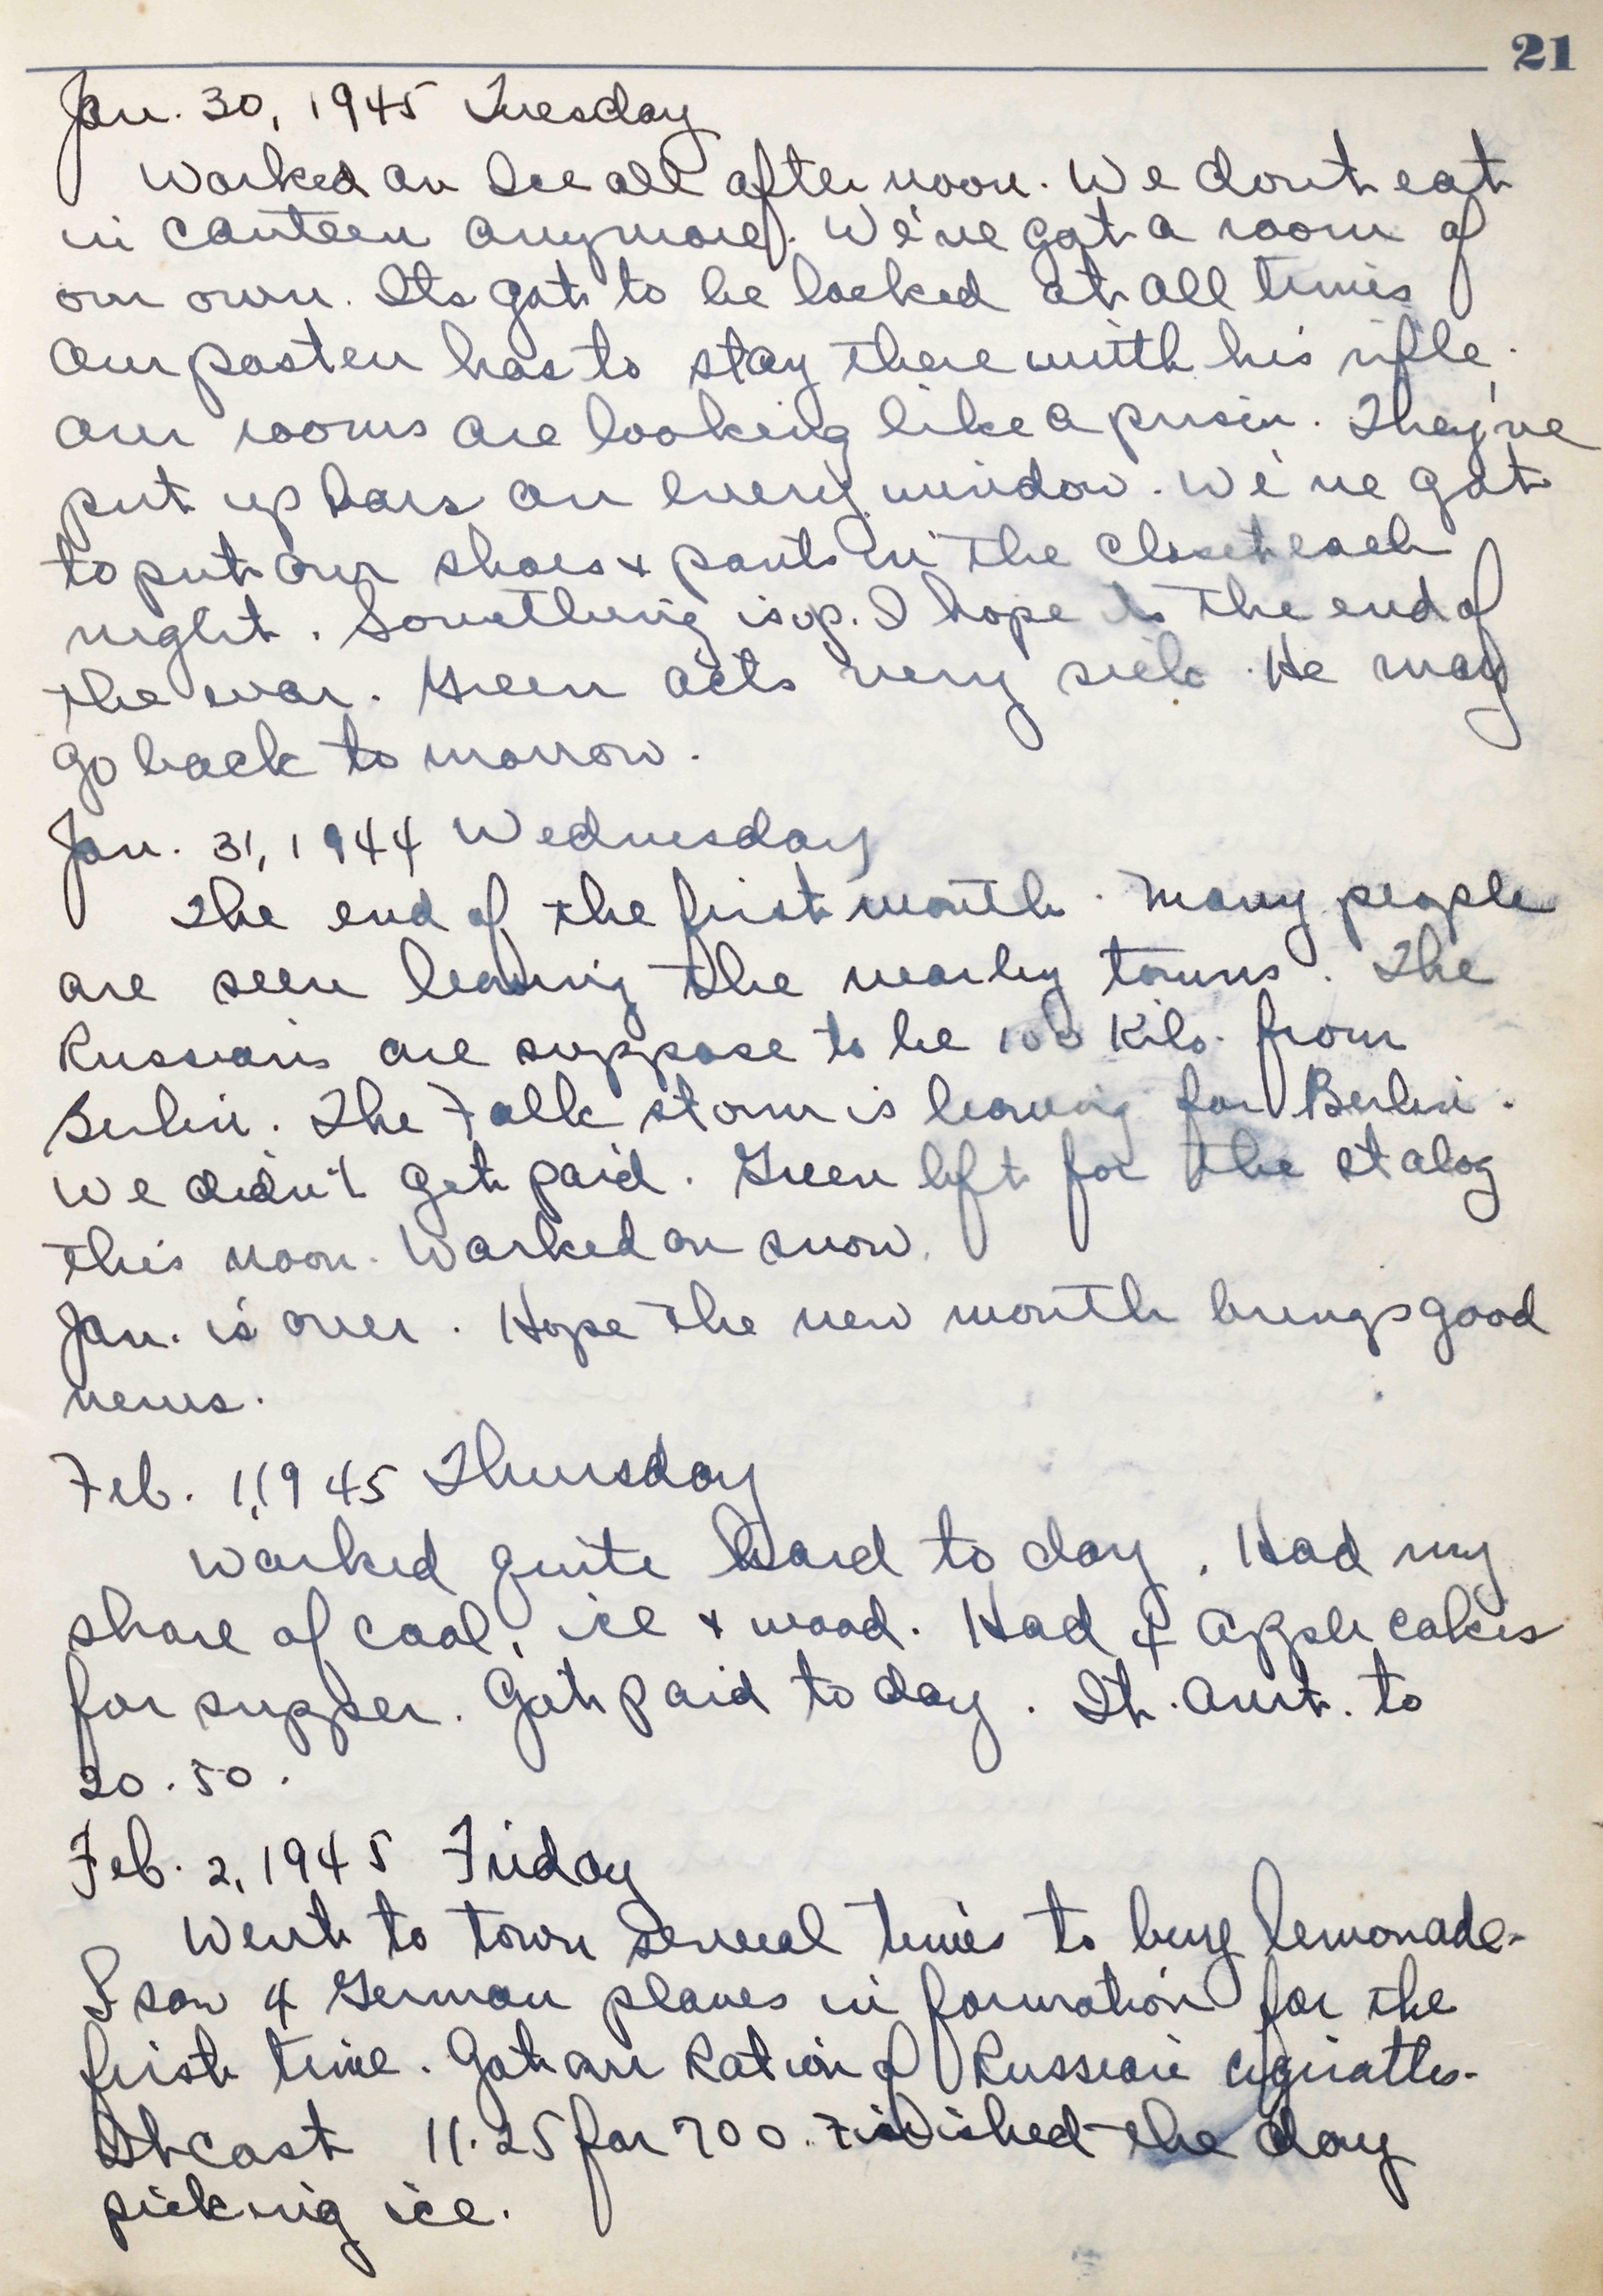 21
Jan. 30, 1945 Tuesday
Worked on Ice all after noon. We dont eat
in canteen anymore. We've got a room of
our own. Its got to be locked at all times
Our posten has to stay there with his rifle.
Our rooms are looking like a prison. They've
put up bars on every window. We've got
to put our shoes & pants in the closet each
night. Something is up. I hope its the end of
the war. Green acts very sick. He may
go back to morrow.
Jan. 31, 1944 Wednesday
The end of the first month. Many people
are seen leaving the nearby towns. The
Russians are suppose to be 100 Kilo. from
Berlin. The Folk storm is leaving for Berlin.
We didn't get paid. Green left for the stalag
this noon. Worked on snow.
Jan. is over. Hope the new month brings good
news.
Feb. 1, 1945 Thursday
Worked quite hard to day. Had my
share of coal, ice & wood. Had 4 apple cakes
for supper. Got paid to day. It. amt. to
20.50.
Feb. 2, 1945 Friday
Went to town several times to buy lemonade.
I saw 4 German planes in formation for the
first time. Got our Ration of Russian cigirattes.
It cost 11.25 for 700. Finished the day
picking ice.